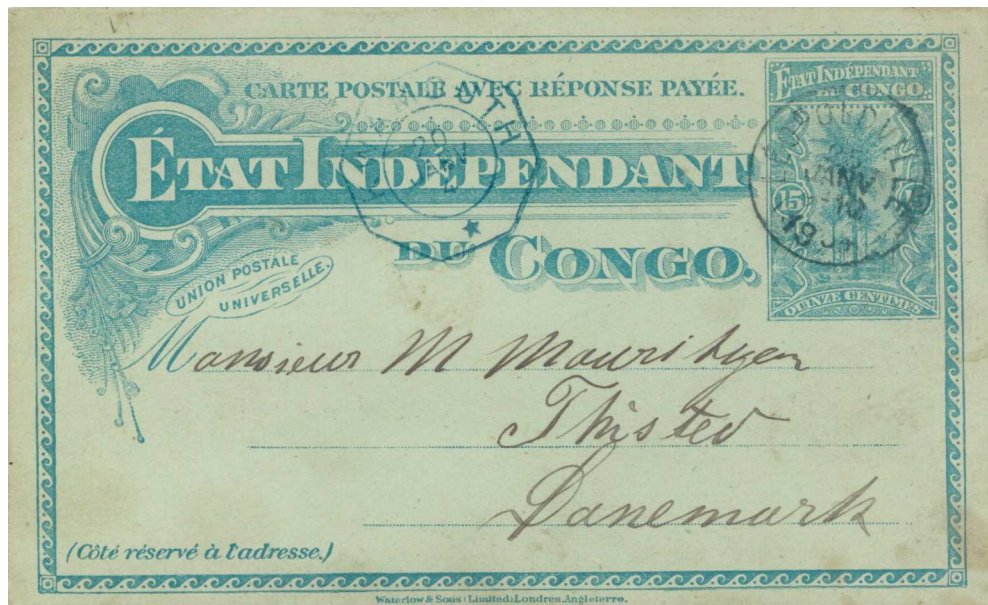 CARTE POSTALE AVEC RÉPONSE PAYÉE.
ÉTAT INDÉPENDANT
DU CONGO.
UNION POSTALE
UNIVERSELLE.
ÉTAT INDÉPENDANT
DU CONGO.
15 15
QUINZE CENTIMES
LEOPOLDVILLE
JANV
20
JANV
Monsieur M
Thisted
Danemark
(Côté réservé à l'adresse.)
Waterlow & Sons Limited, Londres, Angleterre.